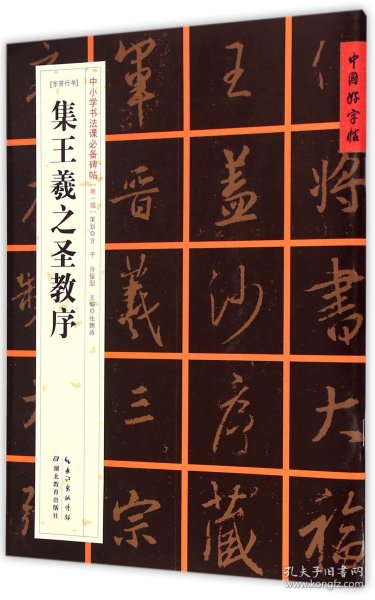 中國好字帖
[东晋行书]
集王羲之圣教序
中小学书法课必备碑帖
[第一辑]
策划◎方平 舟恒划 主编◎张鹏涛
长江出版传媒
湖北教育出版社
将書大福
王蓋沙序藏
軍晋羲三宗
孔夫子旧书网
www.kongfz.com